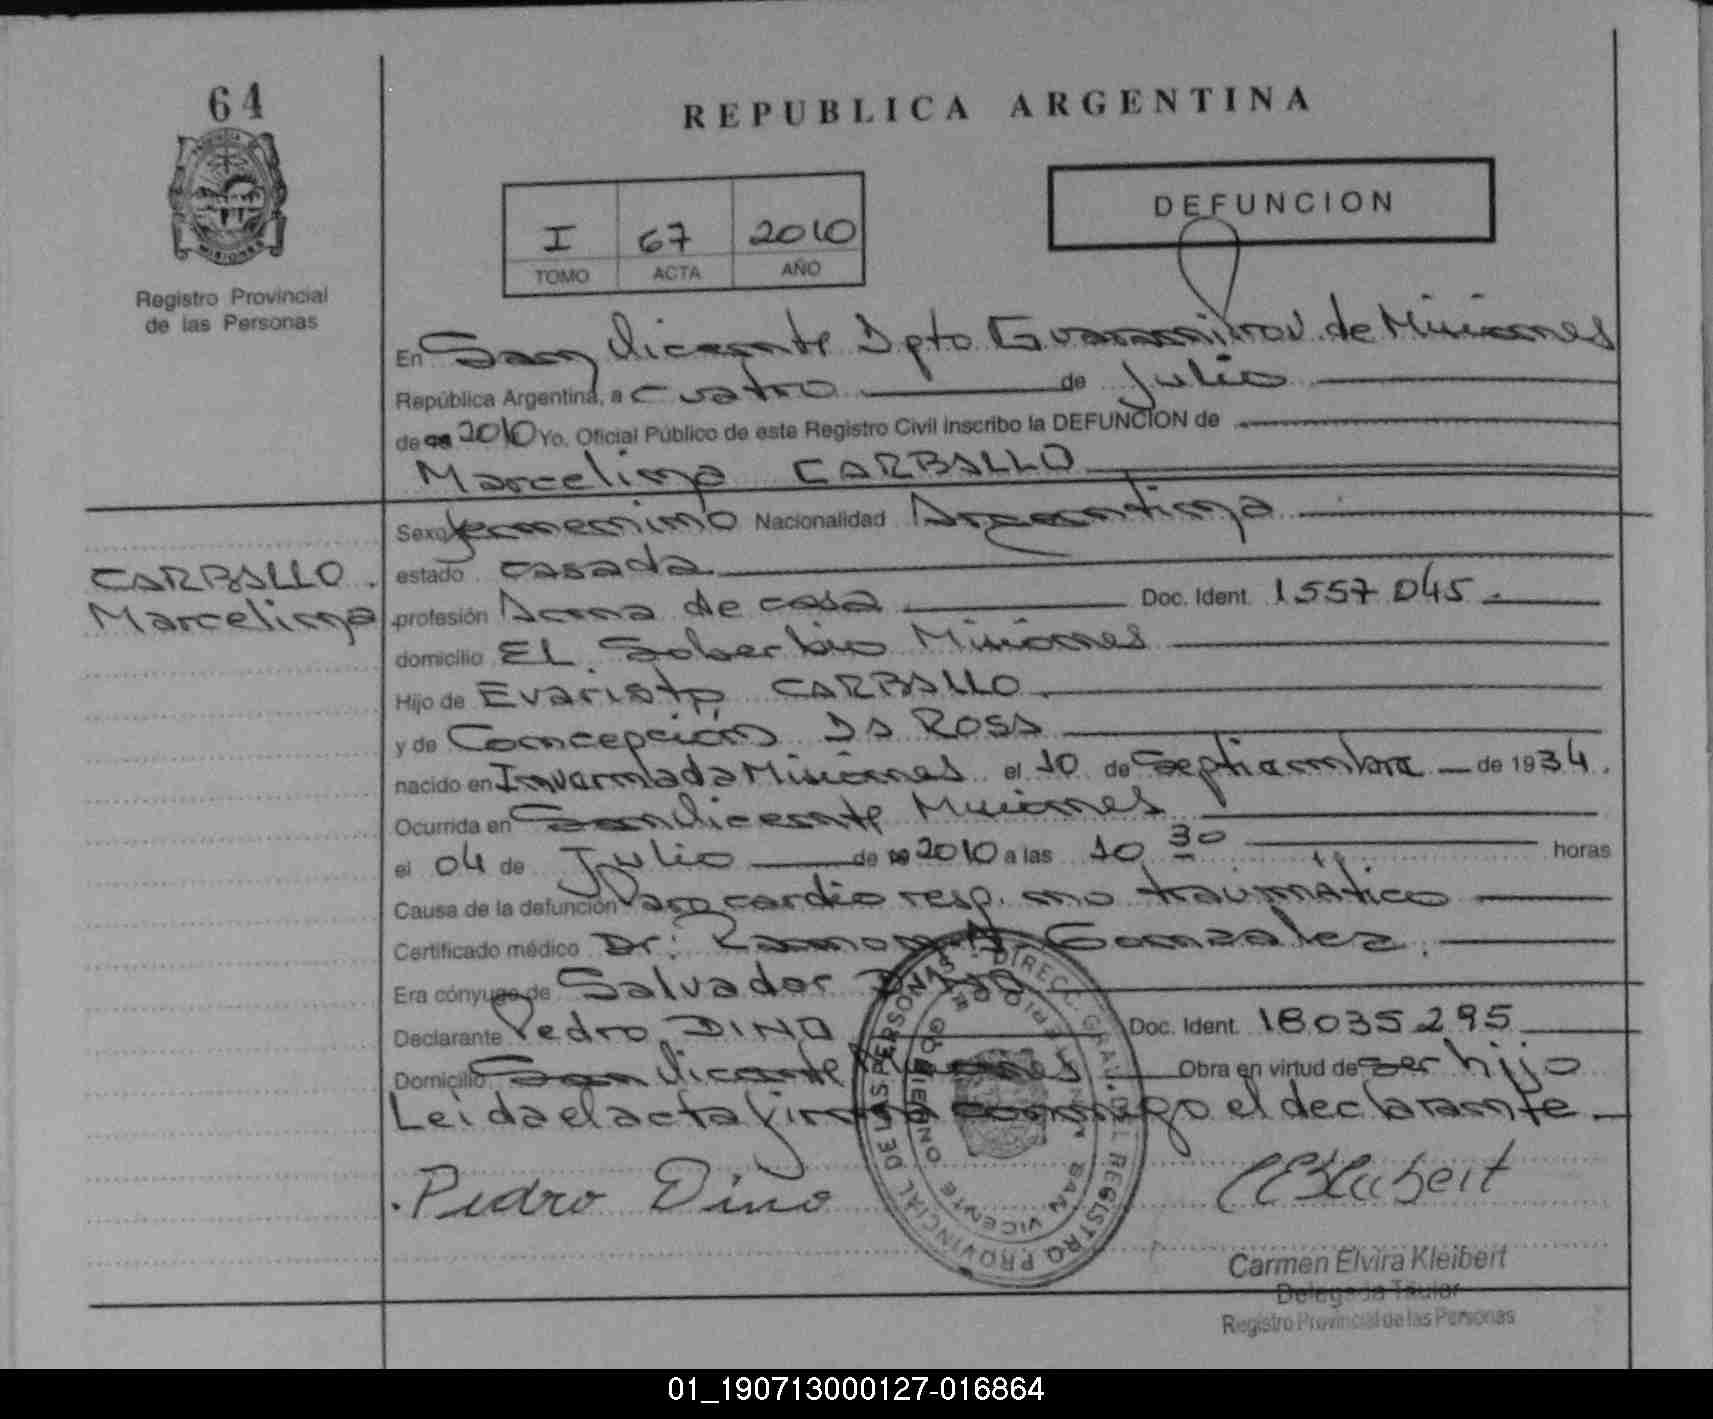 64
REPUBLICA ARGENTINA
DEFUNCION
I 67 2010
TOMO ACTA AÑO
Registro Provincial
de las Personas
En San Vicente Dpto Guarani Prov. de Misiones
República Argentina, a cuatro de Julio
de 2010 Yo, Oficial Público de este Registro Civil inscribo la DEFUNCION de
Marcelina CARBALLO
Sexo femenino Nacionalidad Argentina
CARBALLO.
Marcelina
estado casada
profesión Ama de casa Doc. Ident. 1557.045.
domicilio EL Soberbio Misiones
Hijo de Evaristo CARBALLO.
y de Concepción DA ROSA
nacido en Invernada Misiones el 10 de Septiembre de 1934.
Ocurrida en San Vicente Misiones
el 04 de Julio de 2010 a las 10 30 horas
Causa de la defunción Paro cardio resp. no traumático
Certificado médico Dr. Ramon A. Gonzalez.
Era cónyuge de Salvador DINO
Declarante Pedro DINO Doc. Ident. 18035295
Domicilio San Vicente Misiones Obra en virtud de ser hijo
Leida el acta firma conmigo el declarante
Pedro Dino
Carmen Elvira Kleibert
Delegada Titular
Registro Provincial de las Personas
DIRECC. GRAL. DEL REGISTRO PROVINCIAL DE LAS PERSONAS
SAN VICENTE
01_190713000127-016864